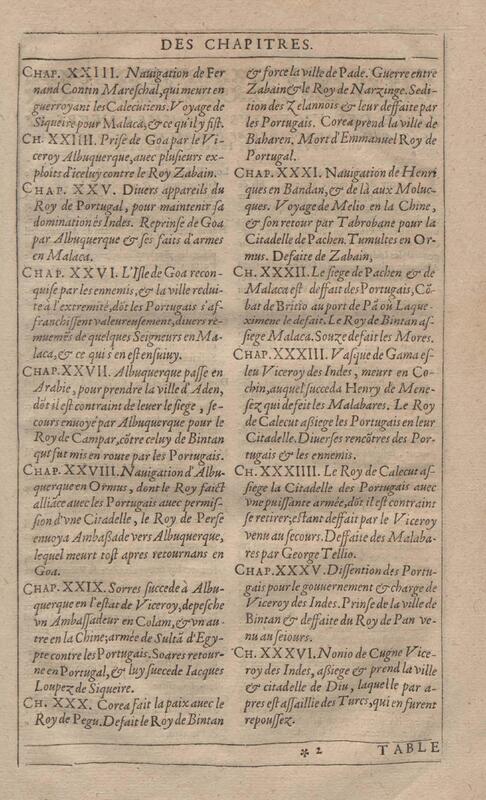 DES CHAPITRES.
CHAP. XXIII. Nauigation de Fer
nand Contin Mareschal, qui meurt en
guerroyant les Calecutiens. Voyage de
Siqueire pour Malaca, & ce qu'il y fist.
CH. XXIIII. Prise de Goa par le Vi-
ceroy Albuquerque, auec plusieurs ex-
ploits d'iceluy contre le Roy Zabain.
CHAP. XXV. Diuers appareils du
Roy de Portugal, pour maintenir sa
domination és Indes. Reprinse de Goa
par Albuquerque & ses faits d'armes
en Malaca.
CHAP. XXVI. L'Isle de Goa recon-
quise par les ennemis, & la ville redui-
te à l'extremité, dõt les Portugais s'af-
franchissent valeureusement, diuers re-
muemẽs de quelques Seigneurs en Ma-
laca, & ce qui s'en est ensuiuy.
CHAP. XXVII. Albuquerque passe en
Arabie, pour prendre la ville d'Aden,
dõt il est contraint de leuer le siege, se-
cours enuoyé par Albuquerque pour le
Roy de Campar, cõtre celuy de Bintan
qut fut mis en route par les Portugais.
CHAP. XXVIII. Nauigation d'Albu-
querque en Ormus, dont le Roy faict
alliãce auec les Portugais auec permis-
sion d'vne Citadelle, le Roy de Perse
enuoya Ambaßade vers Albuquerque,
lequel meurt tost apres retournans en
Goa.
CHAP. XXIX. Sorres succede à Albu-
querque en l'estat de Viceroy, depesche
vn Ambassadeur en Colam, & vn au-
tre en la Chine; armée de Sultã d'Egy-
pte contre les Portugais. Soares retour-
ne en Portugal, & luy succede Iacques
Loupez de Siqueire.
CH. XXX. Corea fait la paix auec le
Roy de Pegu. Defait le Roy de Bintan
& force la ville de Pade. Guerre entre
Zabain & le Roy de Narzinge. Sedi-
tion des Zelannois & leur deffaite par
les Portugais. Corea prend la ville de
Baharen. Mort d'Emmanuel Roy de
Portugal.
CHAP. XXXI. Nauigation de Henri
ques en Bandan, & de là aux Moluc-
ques. Voyage de Melio en la Chine,
& son retour par Tabrobane pour la
Citadelle de Pachen. Tumultes en Or-
mus. Defaite de Zabain,
CH. XXXII. Le siege de Pachen & de
Malaca est deffait des Portugais, Cõ-
bat de Britio au port de Pã où Laque-
ximene le defait. Le Roy de Bintan as-
siege Malaca. Souze defait les Mores.
CHAP. XXXIII. Vasque de Gama es-
leu Viceroy des Indes, meurt en Co-
chin, auquel succeda Henry de Mene-
sez qui defeit les Malabares. Le Roy
de Calecut aßiege les Portugais en leur
Citadelle. Diuerses rencõtres des Por-
tugais & les ennemis.
CH. XXXIIII. Le Roy de Calecut as-
siege la Citadelle des Portugais auec
vne puissante armée, dõt il est contraint
se retirer; estant deffait par le Viceroy
venu au secours. Deffaite des Malaba-
res par George Tellio.
CHAP. XXXV. Dissention des Portu-
gais pour le gouuernement & charge de
Viceroy des Indes. Prinse de la ville de
Bintan & deffaite du Roy de Pan ve-
nu au seiours.
CH. XXXVI. Nonio de Cugne Vice-
roy des Indes, aßiege & prend la ville
& citadelle de Diu, laquelle par a-
pres est assaillie des Turcs, qui en furent
repoussez.
* 2 TABLE